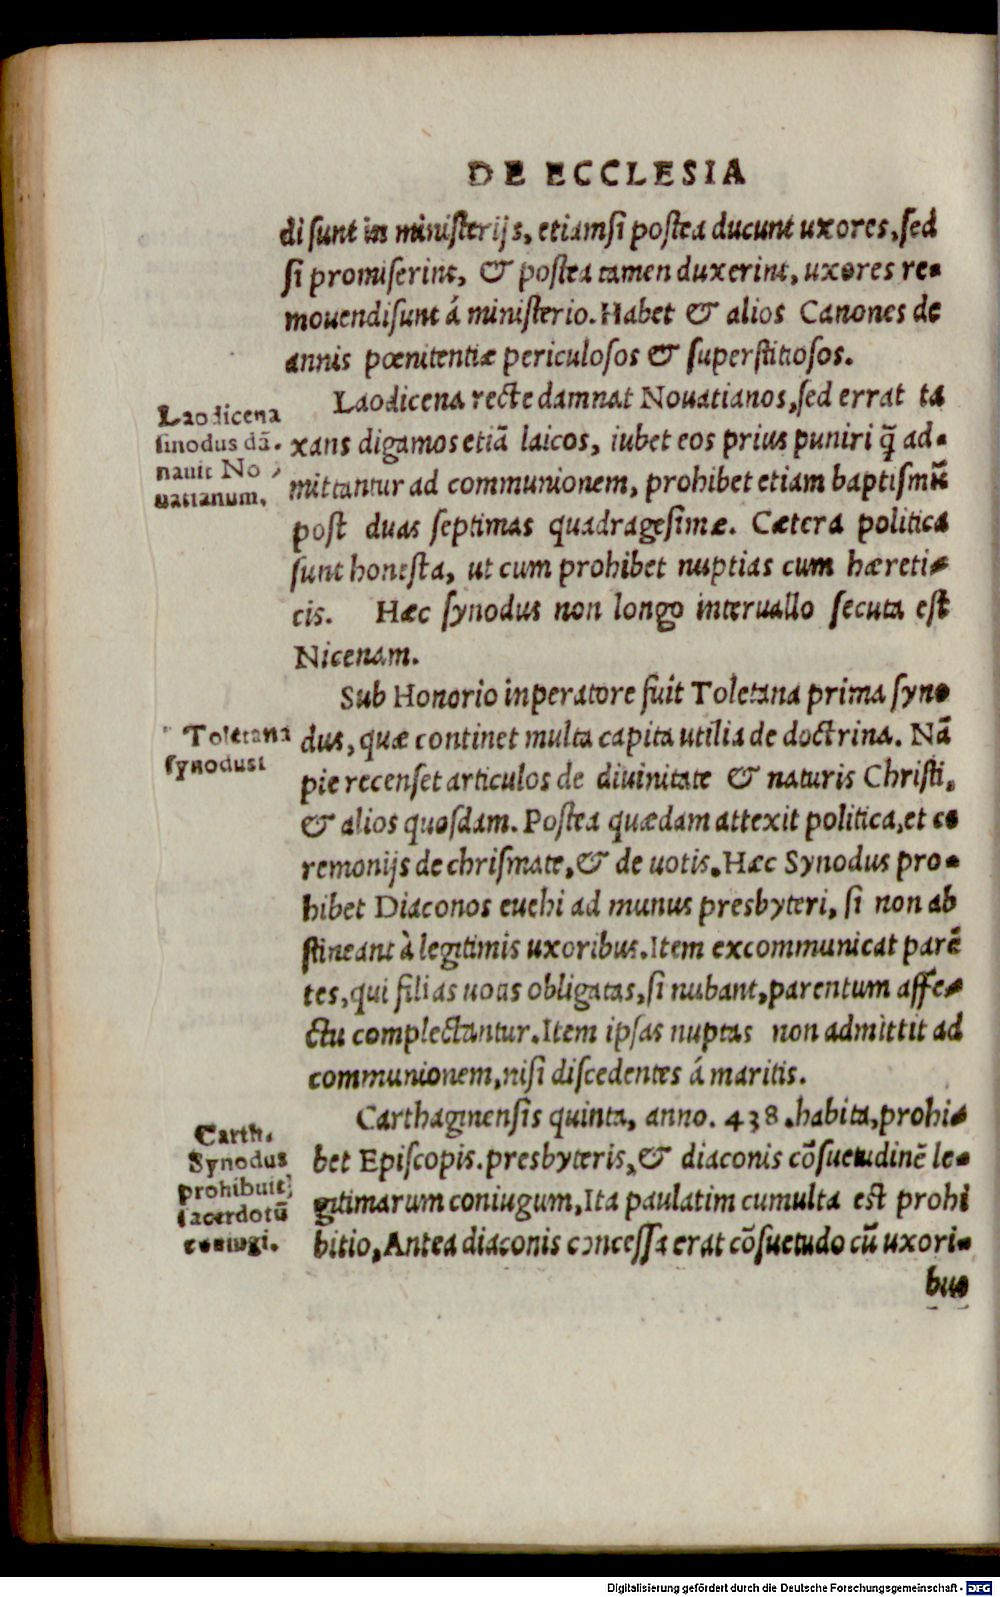 DE ECCLESIA
di sunt in ministerijs, etiamsi postea ducunt uxores, sed
si promiserint, & postea tamen duxerint, uxores re-
mouendi sunt á ministerio. Habet & alios Canones de
annis pœnitentiæ periculosos & superstitiosos.
Laodicena recte damnat Nouatianos, sed errat ta
xans digamos etiã laicos, iubet eos prius puniri q̃ ad-
mittantur ad communionem, prohibet etiam baptismũ
post duas septimas quadragesimæ. Cætera politica
sunt honesta, ut cum prohibet nuptias cum hæreti-
cis. Hæc synodus non longo interuallo secuta est
Nicenam.
Laodicena
sinodus dã-
nauit No
uatianum.
Sub Honorio inperatore fuit Toletana prima syno
dus, quæ continet multa capita utilia de doctrina. Nã
pie recenset articulos de diuinitate & naturis Christi,
& alios quosdam. Postea quædam attexit politica, et ce
remonijs de chrismate, & de uotis. Hæc Synodus pro-
hibet Diaconos euehi ad munus presbyteri, si non ab
stineant à legitimis uxoribus. Item excommunicat parẽ
tes, qui filias uotis obligatas, si nubant, parentum affe-
ctu complectantur. Item ipsas nuptas non admittit ad
communionem, nisi discedentes á maritis.
Toletana
synodusi
Carthaginensis quinta, anno. 438. habita, prohi-
bet Episcopis. presbyteris, & diaconis cõsuetudinẽ le-
gitimarum coniugum, Ita paulatim cumulta est prohi
bitio, Antea diaconis concessa erat cõsuetudo cũ uxori-
bus
Carth.
Synodus
prohibuit
sacerdotũ
coniugi.
Digitalisierung gefördert durch die Deutsche Forschungsgemeinschaft - DFG